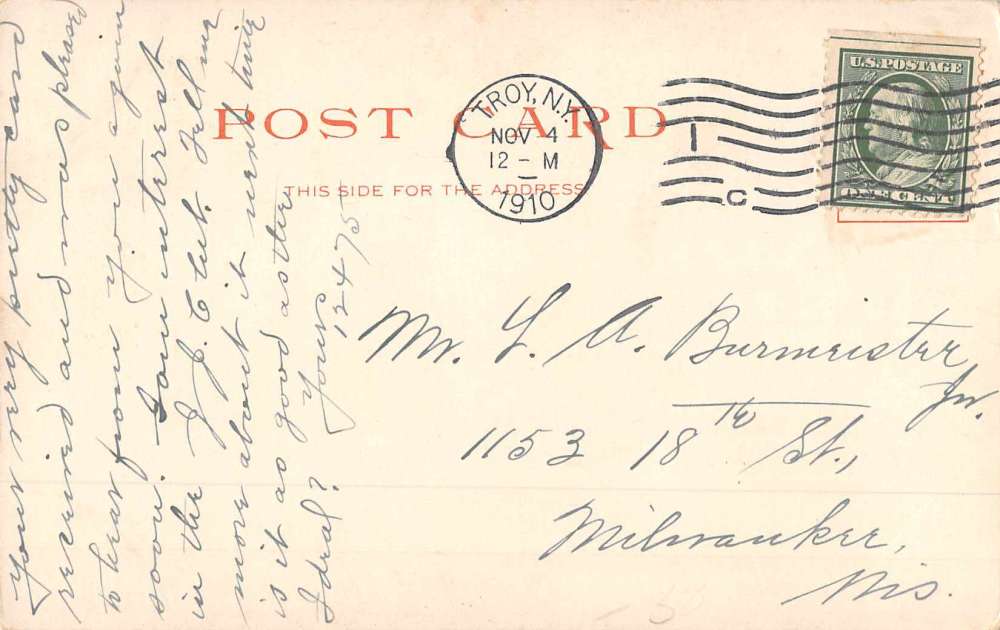 POST CARD
THIS SIDE FOR THE ADDRESS
TROY, N.Y.
NOV 4
12 - M
1910
1
C
U.S. POSTAGE
ONE CENT
Your very pretty card
received and was pleased
to hear from you again
soon. I am interest
in the J. J. Club. Tell me
more about it next time
is it as good as the
Ideal? Yours
12475
Mr. L. A. Burmeister
Jr.
1153 18th St.,
Milwaukee,
Wis.